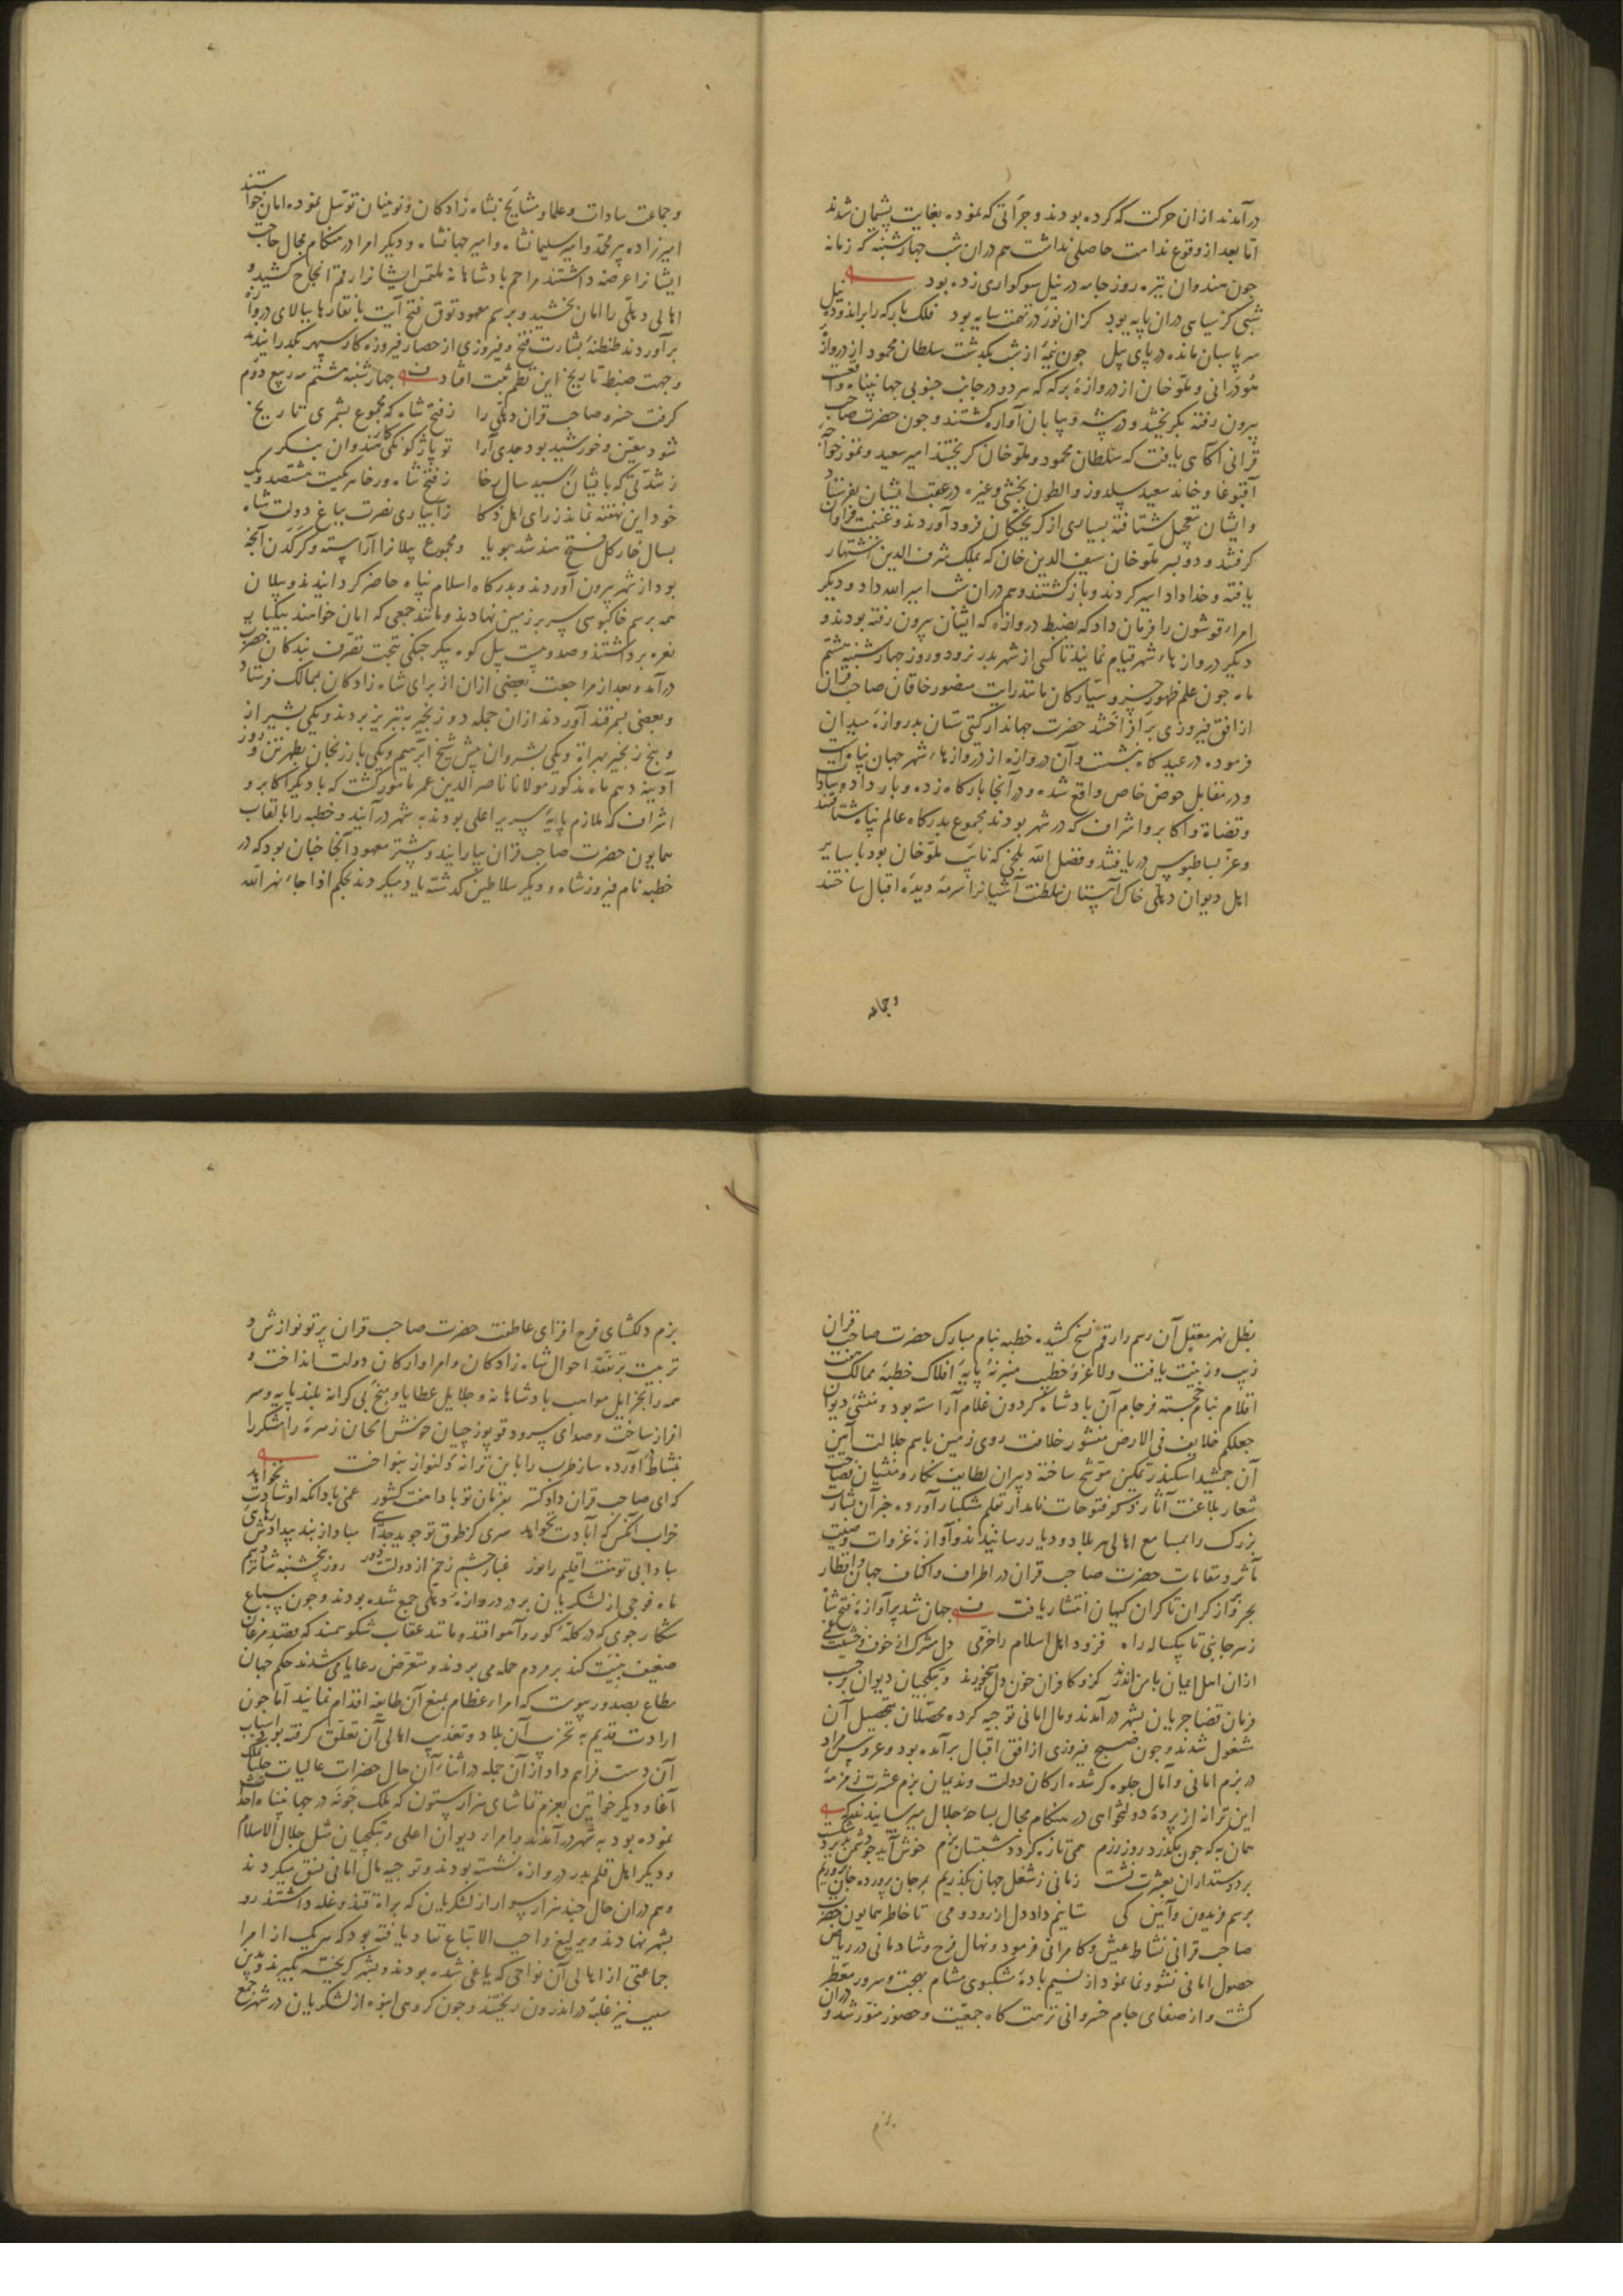 درآمدند ازان حرکت که کرده بودند و جرأتی که نموده بغایت پشیمان شدند
اما بعد از وقوع ندامت حاصلی نداشت هم دران شب چهارشنبه که زمانه
چون هندوان تیره روز جامه در نیل سوکواری زده بود
شبی کز سیاهی دران پایه بود کزان نور در تهمت سایه بود فلک بارکه را براندود نیل
سر پاسبان مانده در پای پیل چون نیمۀ از شب بگذشت سلطان محمود از دروازۀ
حوذرانی و ملّو خان از دروازۀ برکه که هر دو در جانب جنوبی جهان پناه واقعست
بیرون رفته بگریختند و در بیشه و بیابان آواره گشتند و چون حضرت صاحب
قرانی آکاهی یافت که سلطان محمود و ملّو خان گریختند امیر سعید و تمور خواجه
آقبوغا و خاند سعید سلدوز و الطون بخشی و غیره در عقب ایشان بفرستاد
و ایشان بتعجیل شتافته بسیاری از گریختگان فرود آوردند و غنیمت فراوان
گرفتند و دو پسر ملّو خان سیف الدین خان که بملک شرف الدین اشتهار
یافته و خداداد اسیر کردند و بازگشتند و هم دران شب امیر الله داد و دیگر
امراء قوشون را فرمان داد که بضبط دروازه که ایشان بیرون رفته بودند و
دیگر دروازهاء شهر قیام نمایند تا کسی از شهر بدر نرود و روز چهارشنبه هشتم
ماه چون علم ظهور خسرو سیارگان مانند رایات منصور خاقان صاحب قران
از افق فیروزی برافراختند حضرت جهاندار گیتی ستان بدروازۀ میدان
فرموده در عیدگاه بنشست و آن دروازه از دروازهاء شهر جهان پناه است
و در مقابل حوض خاص واقع شده و در آنجا بارگاه زده و بار داده سادات
و قضاة و اکابر و اشراف که در شهر بودند مجموع بدرگاه عالم پناه شتافتند
و عزّ بساطبوس دریافتند و فضل الله بلخی که نایب ملّو خان بود با سایر
اهل دیوان دهلی خاک آستان سلطنت آشیانرا سرمۀ دیدۀ اقبال ساختند
وجماعه
و جماعت سادات و علما و مشایخ بشاه زادکان و نوینان توسل نموده امان خواستند
امیرزاده پیرمحمد و امیر سلیمانشاه و امیر جهانشاه و دیگر امرا در هنگام مجال حاجت
ایشانرا عرضه داشتند مراحم پادشاهانه ملتمس ایشانرا رقم انجاح کشید و
اهالی دهلی را امان بخشید و برسم معهود توق فتح آیت با نقارها ببالای دروازه
برآوردند طنطنۀ بشارت فتح و فیروزی از حصار فیروزه کار سپهر بگذرانیدند
و جهت ضبط تاریخ این نظم ثبت افتاد چهارشنبه هشتم مه ربیع دوم
گرفت خسرو صاحب قران دهلی را ز فتح شاه که مجموع بشمری تاریخ
شود معیّن و خورشید بود جدی آرا تو باژگونگی کار هندوان بنگر
ز فتح شاه ور خامه کیت هشتصد و یک
خود این نهفته نماند ز رای اهل ذکا ز آبیاری نصرت بباغ دولت شاه
بسال خار گل فتح هند شد بویا و مجموع پیلانرا آراسته و کرکدن آنچه
بود از شهر بیرون آوردند و بدرگاه اسلام پناه حاضر گردانیدند و پیلان
همه برسم خاکبوسی سر بر زمین نهادند و مانند جمعی که امان خواهند بیکبار
نعره برداشتند و صد و بیست پیل کوه پیکر جنگی بتحت تصرف بندگان حضرت
درآمد و بعد از مراجعت بعضی ازان از برای شاه زادکان بممالک فرستاد
و بعضی بسمرقند آوردند ازان جمله دو زنجیر بتبریز بردند و یکی بشیراز
و پنج زنجیر بهراة و یکی بشروان پیش شیخ ابرهیم و یکی بارزنجان بطهرتن و روز
آدینه دهم ماه مذکور مولانا ناصر الدین عمر مامور گشت که با دیگر اکابر و
اشراف که ملازم پایۀ سریر اعلی بودند به شهر درآیند و خطبه را بالقاب
همایون حضرت صاحب قران بیارایند و پیشتر معهود آنجا چنان بود که در
خطبه نام فیروزشاه و دیگر سلاطین گذشته یاد میکردند بحکم اذا جاء نهر الله
بطل نهر معقل آن رسم را رقم نسخ کشیده خطبه بنام مبارک حضرت صاحب قران
زیب و زینت یافت ولا غرو خطیب منبر نه پایۀ افلاک خطبۀ ممالک هفت
اقلام بنام خجسته فرجام آن پادشاه گردون غلام آراسته بود و منشی دیوان
جعلکم خلایف فی الارض منشور خلافت روی زمین باسم جلالت آیین
آن جمشید اسکندر تمکین موشح ساخته دبیران لطایف نگار و منشیان فصاحت
شعار بلاغت آثار فتوحات نامدار بقلم مشکبار آورده خبر آن بشارت
بزرگ را بمسامع اهالی هر بلاد و دیار رسانیدند و آوازۀ غزوات و صیت
مآثر و مقامات حضرت صاحب قران در اطراف و اکناف جهان و اقطار
بحر و بر از کران تا کران کیهان انتشار یافت جهان شد پر آوازۀ فتح شاه
ز هر جانبی تا یکساله راه فزود اهل اسلام را خرمی دل مشرک از خون
ازان اهل ایمان بامن اندرند کزو کافران خون دل میخورند و بتکچیان دیوان بر حسب
فرمان قضا جریان بشهر درآمدند و مال امانی توجیه کرده محصّلان بتحصیل آن
مشغول شدند و چون صبح فیروزی از افق اقبال برآمده بود و عروس مراد
در بزم امانی و آمال جلوه گر شده ارکان دولت و ندیمان بزم عشرت زمزمۀ
این ترانه از پردۀ دولتخواهی در هنگام مجال بساحۀ جلال میرسانیدند که
همان به که چون بگذرد روز رزم می تازه گردد شبستان بزم خوش آید چو دشمن
بر دوستداران بعشرت نشست زمانی ز شغل جهان بگذریم
برسم فریدون و آیین کی ستانیم داد دل از رود و می تا خاطر همایون حضرت
صاحب قرانی نشاط عیش و کامرانی فرمود و نهال فرح و شادمانی در ریاض
حصول امانی نشو و نما نمود از نسیم بادۀ مشکبوی مشام بهجت و سرور معطر
گشت و از صفای جام خسروانی نزهت گاه جمعیت و حضور منوّر شد و دران
بزم
بزم دلگشای فرح افزای عاطفت حضرت صاحب قران پرتو نوازش و
تربیت بر تفقد احوال شاه زادکان و امرا و ارکان دولت انداخت و
همه را بجزایل مواهب پادشاهانه و جلایل عطایا و منح بی کرانه بلند پایه و سر
افراز ساخت و صدای سرود قوبوزچیان خوش الحان زهرۀ رامشگر را
بنشاط آورده ساز طرب را باین ترانۀ دلنواز بنواخت
که ای صاحب قران دادگستر بفرمان تو بادا هفت کشور غمی بادا آنکه او شادت نخواهد
خراب آنکس که آبادت نخواهد سری کز طوق تو جوید جدایی مباد از بند بیدادش رهایی
مبادا بی تو هفت اقلیم را نور غبار چشم زخم از دولت دور روز پنجشنبه شانزدهم
ماه فوجی از لشکریان بر در دروازۀ دهلی جمع شده بودند و چون سباع
شکار جوی که در گلۀ گور و آهو افتد و مانند عقاب شکوهمند که بقصد مرغان
ضعیف بنیت کند بر مردم حمله می بردند و متعرض رعایا می شدند حکم جهان
مطاع بصدور پیوست که امراء عظام بمنع آن طایفه اقدام نمایند اما چون
ارادت قدیم به تخریب آن بلاد و تعذیب اهالی آن تعلق گرفته بود اسباب
آن دست فراهم داد از آن جمله در اثناء آن حال حضرات عالیات چلپان ملک
آغا و دیگر خواتین بعزم تماشای هزار ستون که ملک جونه در جهان پناه احداث
نموده بود به شهر درآمدند و امراء دیوان اعلی و بتکچیان مثل جلال الاسلام
و دیگر اهل قلم بدر دروازه نشسته بودند و توجیه مال امانی نسق میکردند
و هم دران حال چند هزار سوار از لشکریان که براة قند و غله داشتند رو
بشهر نهادند و یرلیغ واجب الاتباع نفاذ یافته بود که هر یک از امرا
جماعتی از اهالی آن نواحی که یاغی شده بودند و بشهر گریخته بگیرند و بدین
سبب نیز غلبۀ در اندرون ریختند و چون گروهی انبوه از لشکریان در شهر جمع